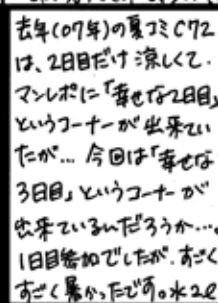 去年(07年)の夏コミC72
は、2日目だけ涼しくて.
マンレポに「幸せな2日目」
というコーナーが出来てい
たが… 今回は「幸せな
3日目」というコーナーが
出来ているんだろうか…。
1日目参加でしたが、すごく
すごく暑かったです。